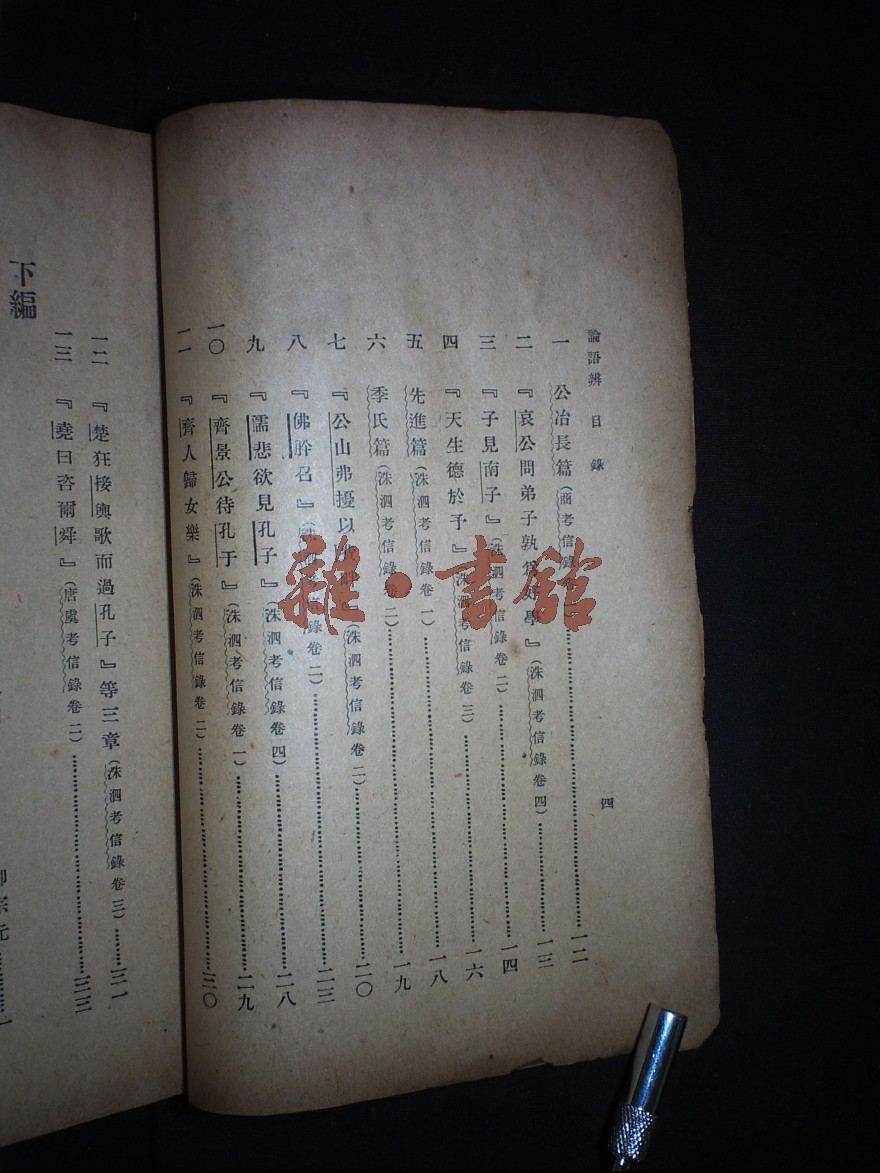 論語辨 目錄
四
一 公冶長篇(商考信錄卷
)……一二
二 『哀公問弟子孰爲好學』(洙泗考信錄卷四)……一三
三 『子見南子』(洙泗考信錄卷二)……一四
四 『天生德於予』(洙泗考信錄卷三)……一六
五 先進篇(洙泗考信錄卷一)……一八
六 季氏篇(洙泗考信錄卷二)……一九
七 『公山弗擾以
』(洙泗考信錄卷二)……二〇
八 『佛肸召』(洙泗考信錄卷二)……二三
九 『孺悲欲見孔子』(洙泗考信錄卷四)……二八
一〇 『齊景公待孔子』(洙泗考信錄卷一)……二九
一一 『齊人歸女樂』(洙泗考信錄卷二)……三〇
一二 『楚狂接輿歌而過孔子』等三章(洙泗考信錄卷三)……三一
一三 『堯曰咨爾舜』(唐虞考信錄卷二)……三三
下編
宗元……一
雜·書館